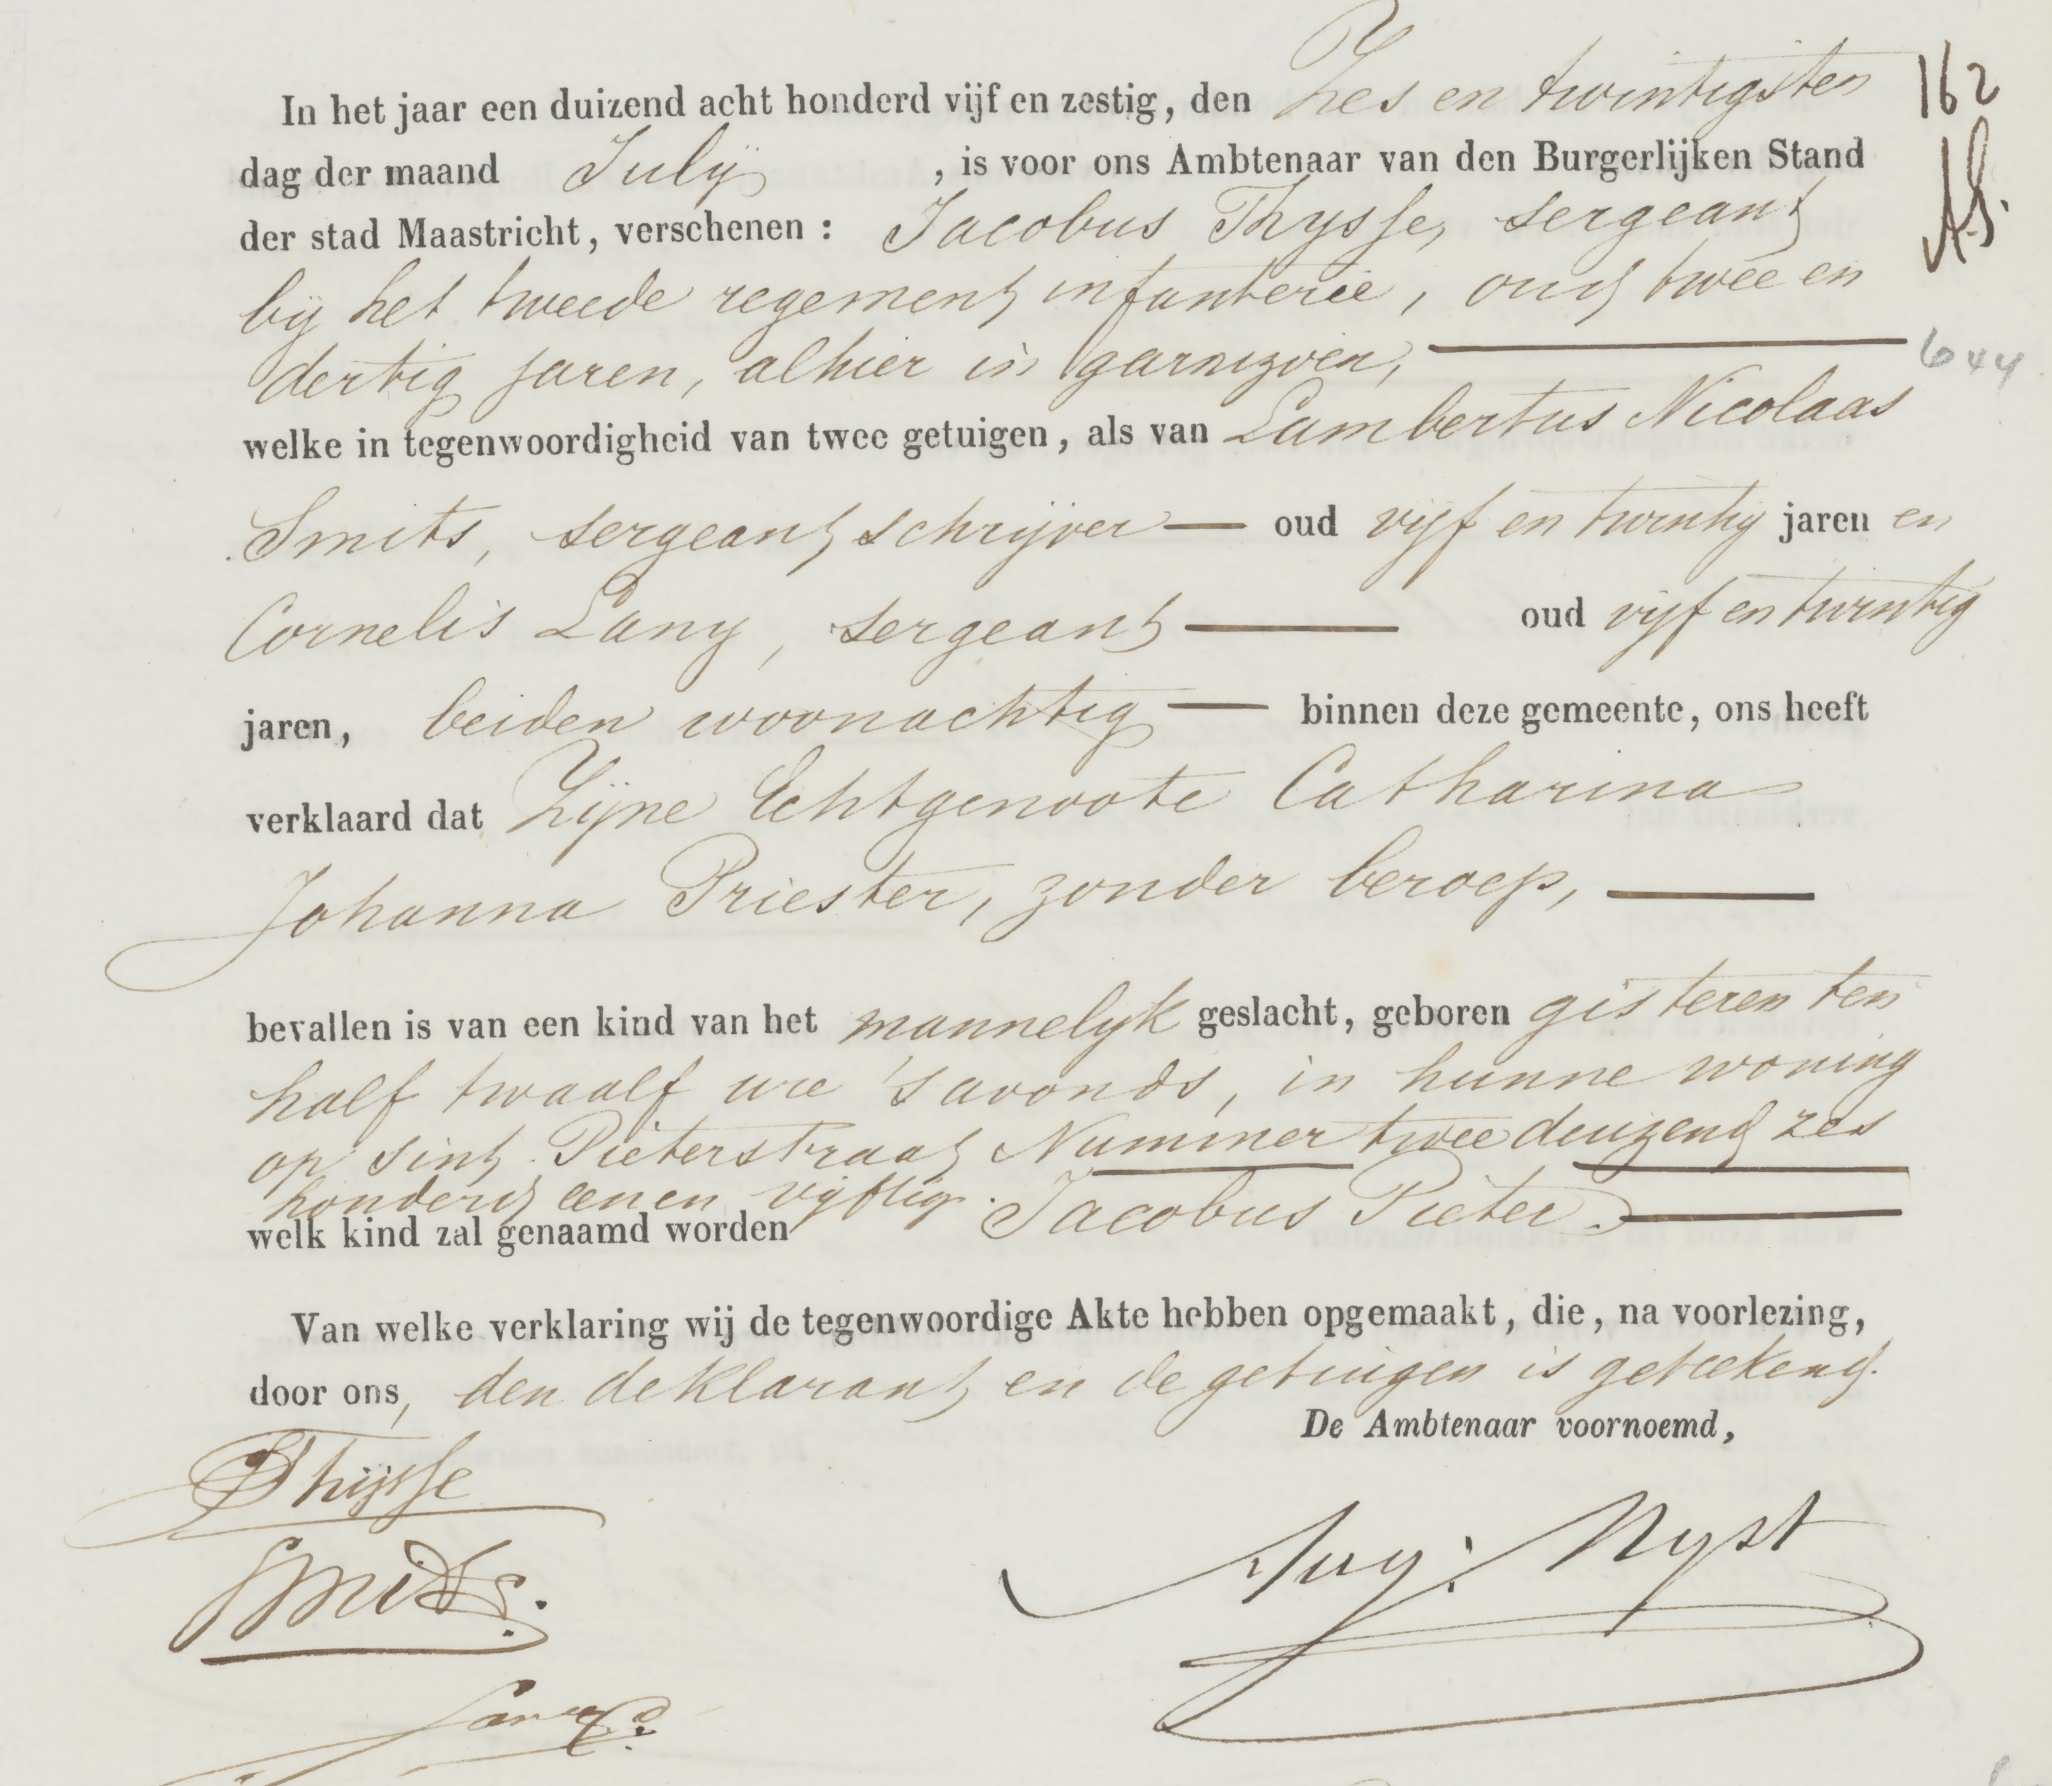 In het jaar een duizend acht honderd vijf en zestig, den Zes en twintigsten
162
dag der maand Julij, is voor ons Ambtenaar van den Burgerlijken Stand
der stad Maastricht, verschenen : Jacobus Thysse, sergeant
bij het tweede regement infanterie, oud twee en
dertig jaren, alhier in garnizoen,
644
welke in tegenwoordigheid van twee getuigen, als van Lambertus Nicolaas
Smits, sergeant schrijver — oud vijf en twintig jaren en
Cornelis Lany, sergeant — oud vijf en twintig
jaren, beiden woonachtig — binnen deze gemeente, ons heeft
verklaard dat Zijne Echtgenoote Catharina
Johanna Priester, zonder beroep, —
bevallen is van een kind van het mannelyk geslacht, geboren gisteren ten
half twaalf ure 'savonds, in hunne woning
op Sint Pieterstraat Nummer twee duizend zes
honderd een en vijftig.
welk kind zal genaamd worden Jacobus Pieter. —
Van welke verklaring wij de tegenwoordige Akte hebben opgemaakt, die, na voorlezing,
door ons, den deklarant en de getuigen is geteekend.
De Ambtenaar voornoemd,
Thijsse
Smits.
Aug. Nyst